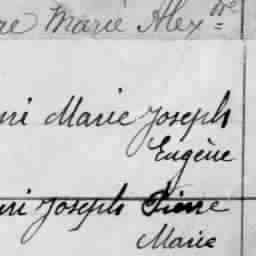 Marie Alex.dre
Marie Joseph
Eugène
Joseph Pierre
Marie